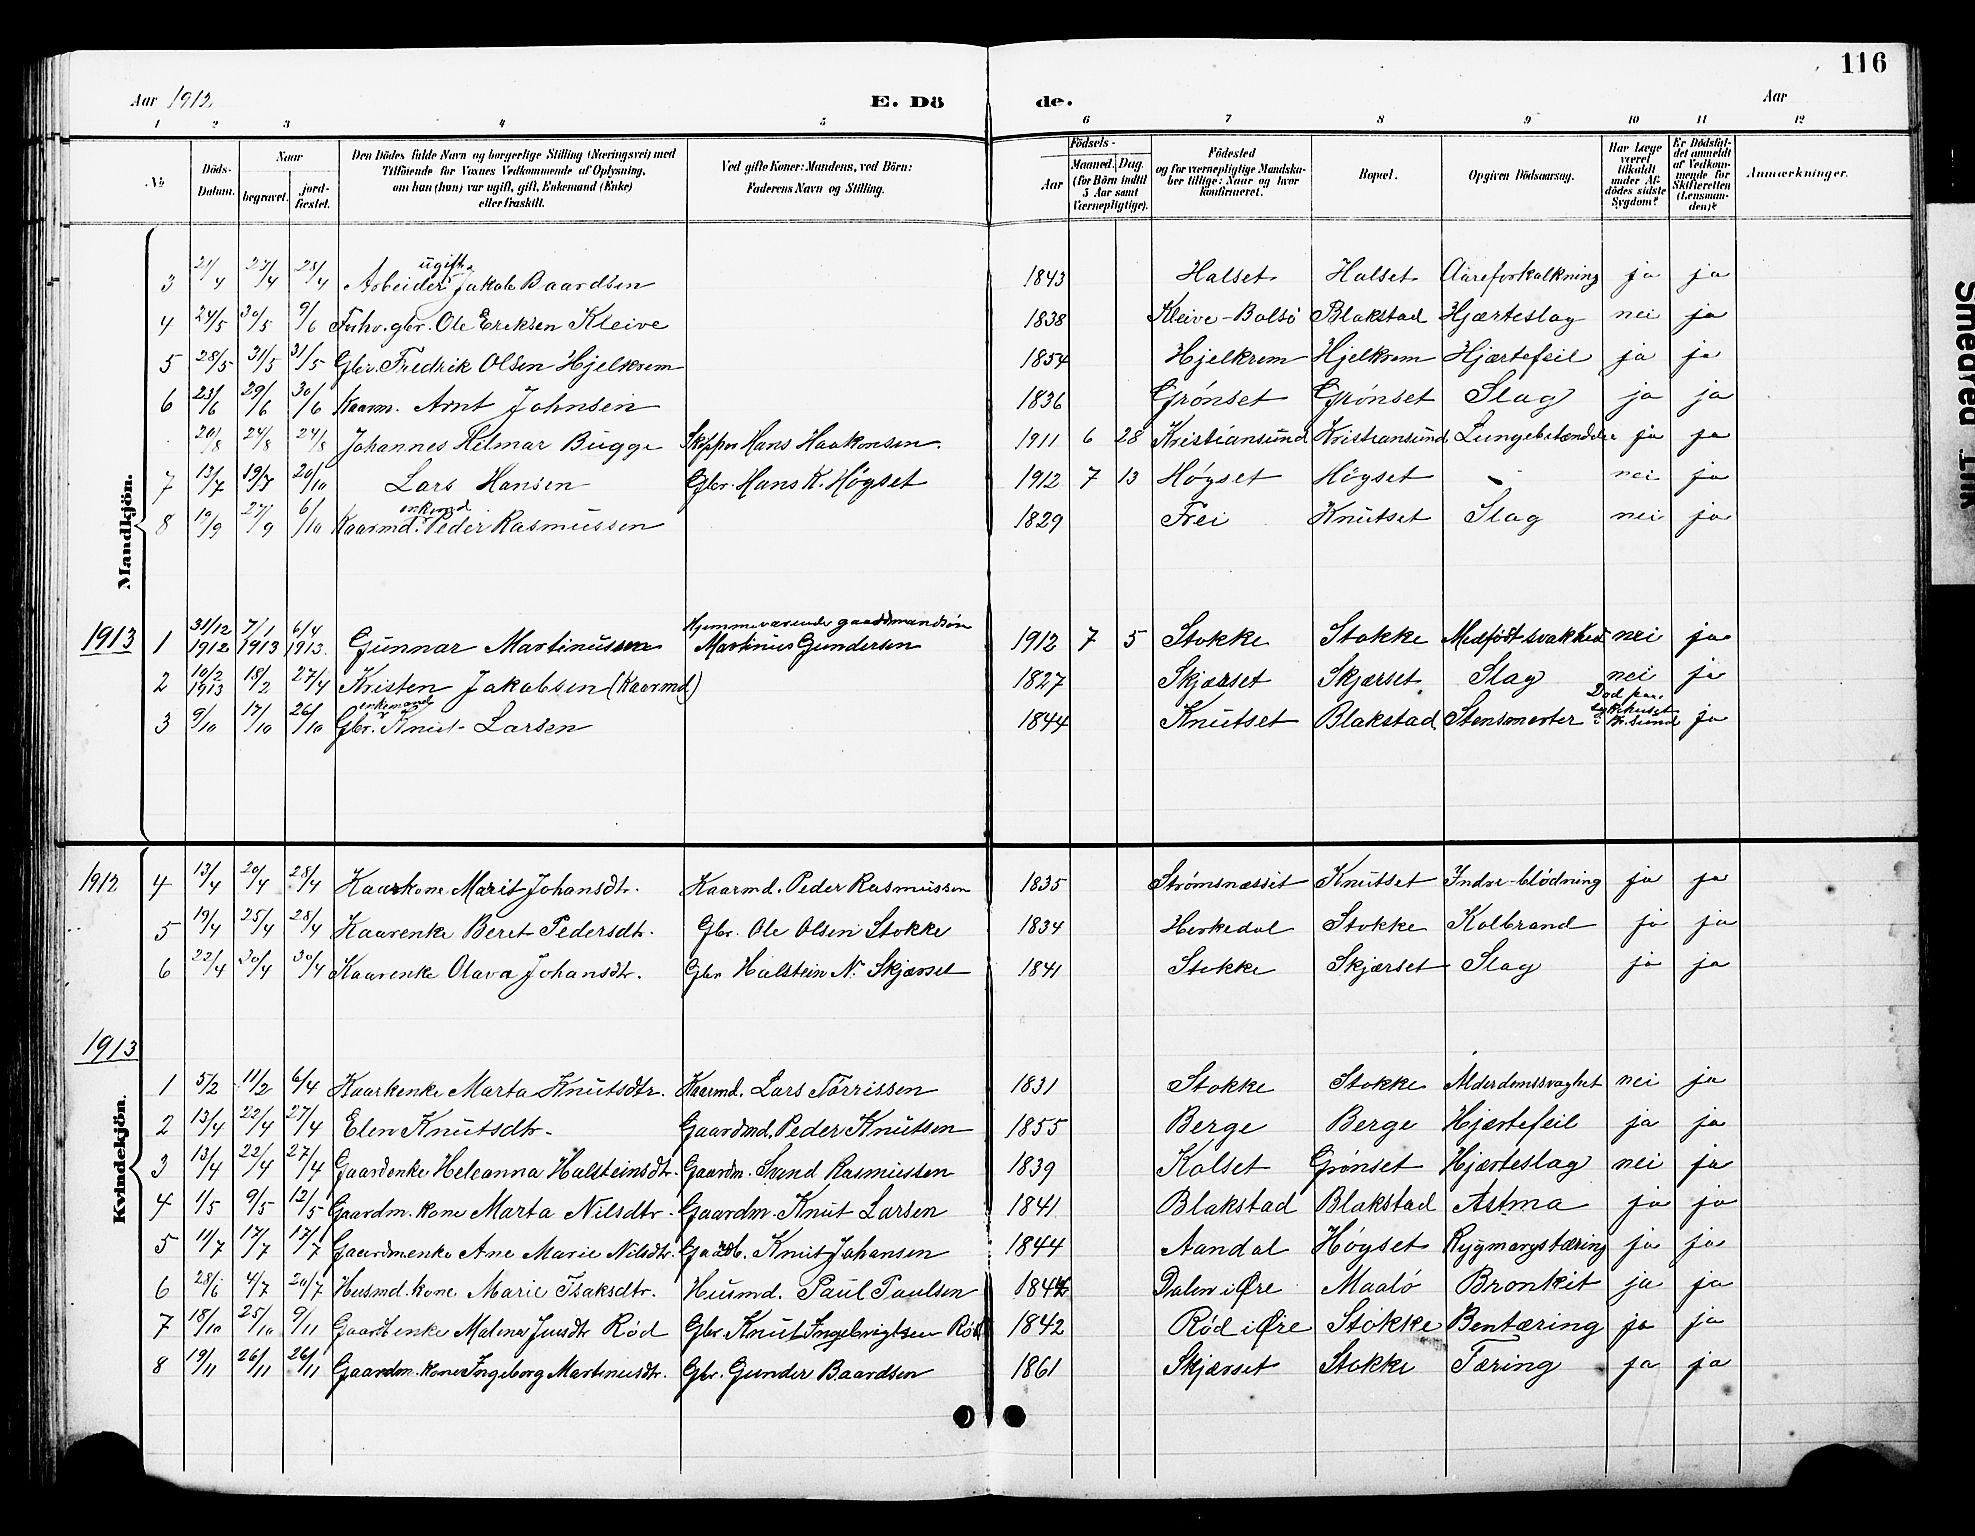 116
Aar 1912.
E. Dö de.
Aar
1 2 3 4 5 6 7 8 9 10 11 12
No
Döds-Datum.
Naar
begravet.
jord-fæstet.
Den Dödes fulde Navn og borgerlige Stilling (Næringsvei) med Tilföiende for Voxnes Vedkommende af Oplysning, om han (hun) var ugift, gift, Enkemand (Enke) eller fraskilt.
Ved gifte Koner: Mandens, ved Börn: Faderens Navn og Stilling.
Födsels-
Aar
Maaned. Dag.
(for Börn indtil 5 Aar samt Værnepligtige).
Födested og for værnepligtige Mandska-ber tillige: Naar og hvor konfirmeret.
Bopæl.
Opgiven Dödsaarsag.
Har Læge været tilkaldt under Af-dödes sidste Sygdom?
Er Dödsfal-det anmeldt af Vedkom-mende for Skifteretten (Lensman-den)?
Anmærkninger.
Mandkjön.
3 21/4 27/4 28/4 Arbeider ugift Jakob Baardsen 1843 Halset Halset Aareforkalkning ja ja
4 24/5 30/5 9/6 Forhv. gbr. Ole Eriksen Kleive 1838 Kleive-Bolsö Blakstad Hjærteslag nei ja
5 28/5 31/5 31/5 Gbr. Fredrik Olsen Hjelkrem 1854 Hjelkrem Hjelkrem Hjærtefeil ja ja
6 23/6 29/6 30/6 Kaarm. Arnt Johnsen 1836 Grønset Grønset Slag ja ja
20/8 24/8 24/8 Johannes Helmar Bugge Skipper Hans Haakonsen. 1911 6 28 Kristiansund Kristiansund Lungebetændelse ja ja
7 13/7 19/7 20/10 Lars Hansen Gbr. Hans K. Høgset 1912 7 13 Høgset Högset - nei ja
8 19/9 27/9 6/10 Kaarmd. enkemd Peder Rasmussen 1829 Frei Knutset Slag nei ja
1913 1 31/12 1912 7/1 1913 6/4 1913. Gunnar Martinussen Hjemmeværende gaardmandsøn Martinus Gundersen 1912 7 5 Stokke Stokke Medfödt svakhed nei ja
2 10/2 1913 18/2 27/4 Kristen Jakobsen (Kaarmd) 1827 Skjærset Skjærset Slag nei ja
3 9/10 17/10 26/10 Gbr. enkemand Knut Larsen 1844 Knutset Blakstad Stensmerter Död paa sykehuset i Kr.sund ja
Kvindekjön.
1912 4 13/4 20/4 28/4 Kaarkone Marit Johansdtr. Kaarmd. Peder Rasmussen 1835 Strömsnæsset Knutset Indre-blödning ja ja
5 19/4 25/4 28/4 Kaarenke Beret Pedersdtr. Gbr. Ole Olsen Stokke 1834 Herkedal Stokke Kolbrand ja ja
6 22/4 30/4 30/4 Kaarenke Olava Johansdtr. Gbr Halstein N. Skjærset 1841 Stokke Skjærset Slag ja ja
1913
1 5/2 11/2 6/4 Kaarkenke Marta Knutsdtr. Kaarmd. Lars Torrissen 1831 Stokke Stokke Alderdomssvaghet nei ja
2 13/4 22/4 27/4 Elen Knutsdtr. Gaardmd. Peder Knutsen 1855 Berge Berge Hjærtefeil ja ja
3 13/4 22/4 27/4 Gaardenke Heleanna Halsteinsdtr. Gaardm. Svend Rasmussen 1839 Kolset Grønset Hjærteslag nei ja
4 1/5 9/5 12/5 Gaardm. kone Marta Nilsdtr. Gaardm. Knut Larsen 1841 Blakstad Blakstad Astma ja ja
5 11/7 17/7 17/7 Gaardmenke Ane Marie Nilsdtr. Gaardb. Knut Johansen 1844 Aandal Høgset Rygmargstæring ja ja
6 28/6 4/7 20/7 Husmd. kone Marie Isaksdtr. Husmd. Paul Paulsen 184 Dalen i Øre Maalö Bronkit ja ja
7 18/10 25/10 9/11 Gaardbenke Malena Juusdtr Rød Gbr. Knut Ingebrigtsen Rød 1842 Rød i Øre Stokke Bentæring ja ja
8 19/11 26/11 26/11 Gaardm. kone Ingeborg Martinusdtr. Gbr. Gunder Baardsen 1861 Skjærset Stokke Tæring ja ja
Smeared Ink